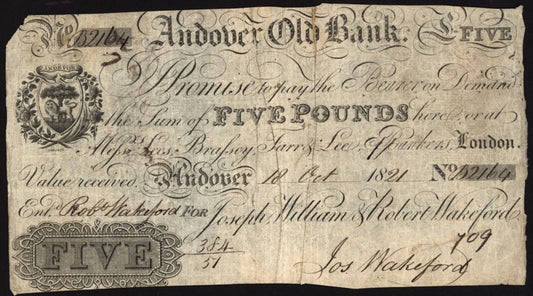 No. D2164 Andover Old Bank. £ FIVE
ANDEVOR
I Promise to pay the Bearer on Demand
the Sum of FIVE POUNDS here or at
Messrs Lees Brassey, Farr & Lee, Bankers, London.
Value received. Andover 18 Oct 1821 No. D2164
Entd. Robt Wakeford FOR Joseph, William & Robert Wakeford
FIVE
384
51
709
Jos Wakeford